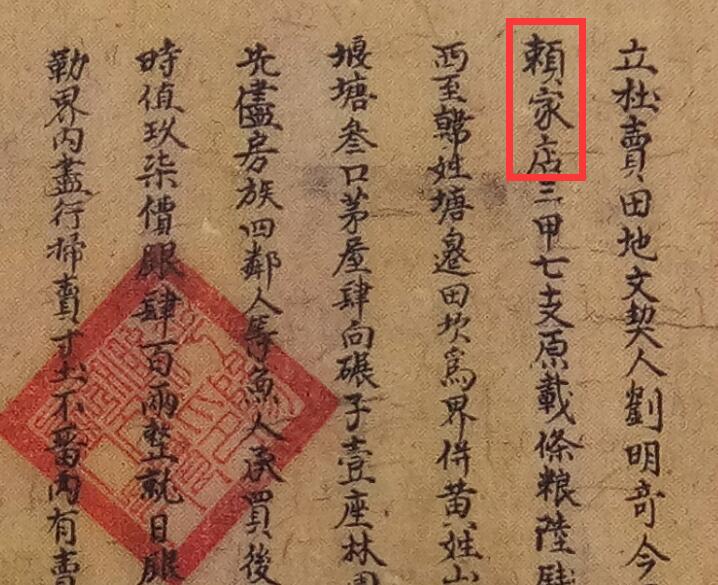 立杜賣田地文契人劉明奇今
賴家店三甲七支原載條粮陸
西至韓姓塘邉田坎爲界併黄姓山
堰塘叄口茅屋肆向碾子壹座林園
先儘房族四鄰人等無人承買後
時值玖柒價銀肆百兩整就日眼
勒界内盡行掃賣寸土不畱内有賣